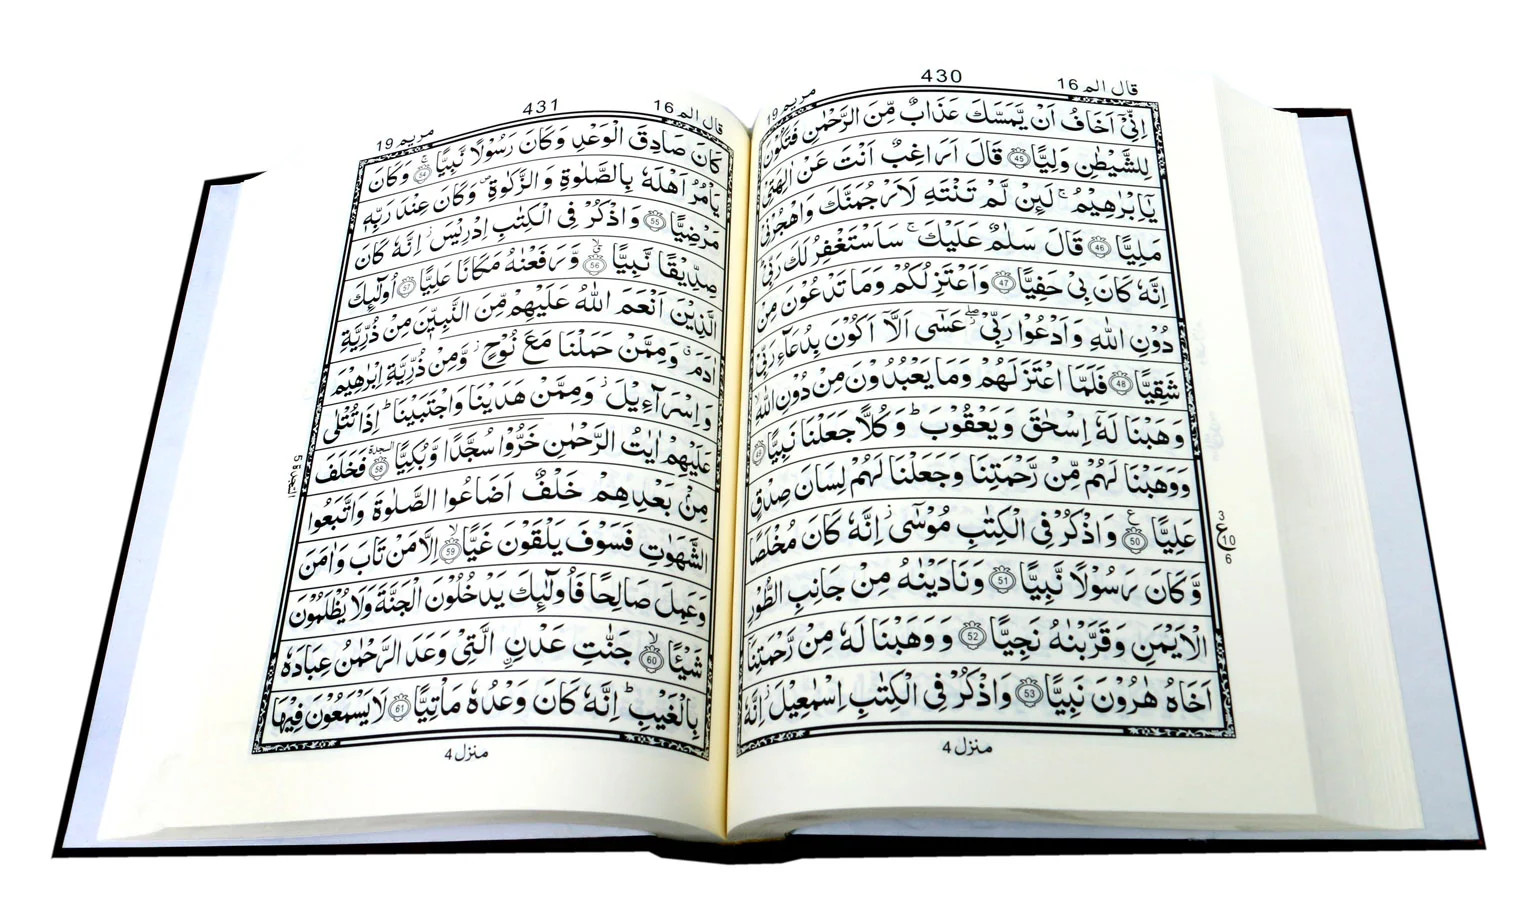 قال الم 16
430
مريم 19
اِنِّیْۤ اَخَافُ اَنْ یَّمَسَّكَ عَذَابٌ مِّنَ الرَّحْمٰنِ فَتَكُوْنَ
لِلشَّیْطٰنِ وَلِیًّا 45 قَالَ اَرَاغِبٌ اَنْتَ عَنْ اٰلِهَتِیْ
یٰۤاِبْرٰهِیْمُ ۚ لَىِٕنْ لَّمْ تَنْتَهِ لَاَرْجُمَنَّكَ وَاهْجُرْنِیْ
مَلِیًّا 46 قَالَ سَلٰمٌ عَلَیْكَ ۚ سَاَسْتَغْفِرُ لَكَ رَبِّیْ
اِنَّهٗ كَانَ بِیْ حَفِیًّا 47 وَاَعْتَزِلُكُمْ وَمَا تَدْعُوْنَ مِنْ
دُوْنِ اللّٰهِ وَاَدْعُوْا رَبِّیْ ۖ عَسٰۤی اَلَّاۤ اَكُوْنَ بِدُعَآءِ رَبِّیْ
شَقِیًّا 48 فَلَمَّا اعْتَزَلَهُمْ وَمَا یَعْبُدُوْنَ مِنْ دُوْنِ اللّٰهِ
وَهَبْنَا لَهٗۤ اِسْحٰقَ وَیَعْقُوْبَ ؕ وَكُلًّا جَعَلْنَا نَبِیًّا 49
وَوَهَبْنَا لَهُمْ مِّنْ رَّحْمَتِنَا وَجَعَلْنَا لَهُمْ لِسَانَ صِدْقٍ
عَلِیًّا 50 وَاذْكُرْ فِی الْكِتٰبِ مُوْسٰۤی ۫ اِنَّهٗ كَانَ مُخْلَصًا
وَّكَانَ رَسُوْلًا نَّبِیًّا 51 وَنَادَیْنٰهُ مِنْ جَانِبِ الطُّوْرِ
الْاَیْمَنِ وَقَرَّبْنٰهُ نَجِیًّا 52 وَوَهَبْنَا لَهٗ مِنْ رَّحْمَتِنَاۤ
اَخَاهُ هٰرُوْنَ نَبِیًّا 53 وَاذْكُرْ فِی الْكِتٰبِ اِسْمٰعِیْلَ ۫ اِنَّهٗ
3
ع
10
6
منزل 4
قال الم 16
431
مريم 19
كَانَ صَادِقَ الْوَعْدِ وَكَانَ رَسُوْلًا نَّبِیًّا 54 وَكَانَ
یَاْمُرُ اَهْلَهٗ بِالصَّلٰوةِ وَالزَّكٰوةِ ۪ وَكَانَ عِنْدَ رَبِّهٖ
مَرْضِیًّا 55 وَاذْكُرْ فِی الْكِتٰبِ اِدْرِیْسَ ۫ اِنَّهٗ كَانَ
صِدِّیْقًا نَّبِیًّا 56 وَّرَفَعْنٰهُ مَكَانًا عَلِیًّا 57 اُولٰٓىِٕكَ
الَّذِیْنَ اَنْعَمَ اللّٰهُ عَلَیْهِمْ مِّنَ النَّبِیّٖنَ مِنْ ذُرِّیَّةِ
اٰدَمَ ۗ وَمِمَّنْ حَمَلْنَا مَعَ نُوْحٍ ؗ وَّمِنْ ذُرِّیَّةِ اِبْرٰهِیْمَ
وَاِسْرَآءِیْلَ ؗ وَمِمَّنْ هَدَیْنَا وَاجْتَبَیْنَا ؕ اِذَا تُتْلٰی
عَلَیْهِمْ اٰیٰتُ الرَّحْمٰنِ خَرُّوْا سُجَّدًا وَّبُكِیًّا 58 فَخَلَفَ
مِنْۢ بَعْدِهِمْ خَلْفٌ اَضَاعُوا الصَّلٰوةَ وَاتَّبَعُوا
الشَّهَوٰتِ فَسَوْفَ یَلْقَوْنَ غَیًّا 59 اِلَّا مَنْ تَابَ وَاٰمَنَ
وَعَمِلَ صَالِحًا فَاُولٰٓىِٕكَ یَدْخُلُوْنَ الْجَنَّةَ وَلَا یُظْلَمُوْنَ
شَیْـًٔا 60 جَنّٰتِ عَدْنِ الَّتِیْ وَعَدَ الرَّحْمٰنُ عِبَادَهٗ
بِالْغَیْبِ ؕ اِنَّهٗ كَانَ وَعْدُهٗ مَاْتِیًّا 61 لَا یَسْمَعُوْنَ فِیْهَا
السجدة 5
منزل 4